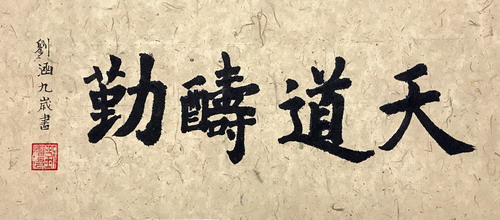 天道醻勤
劉涵九歲書